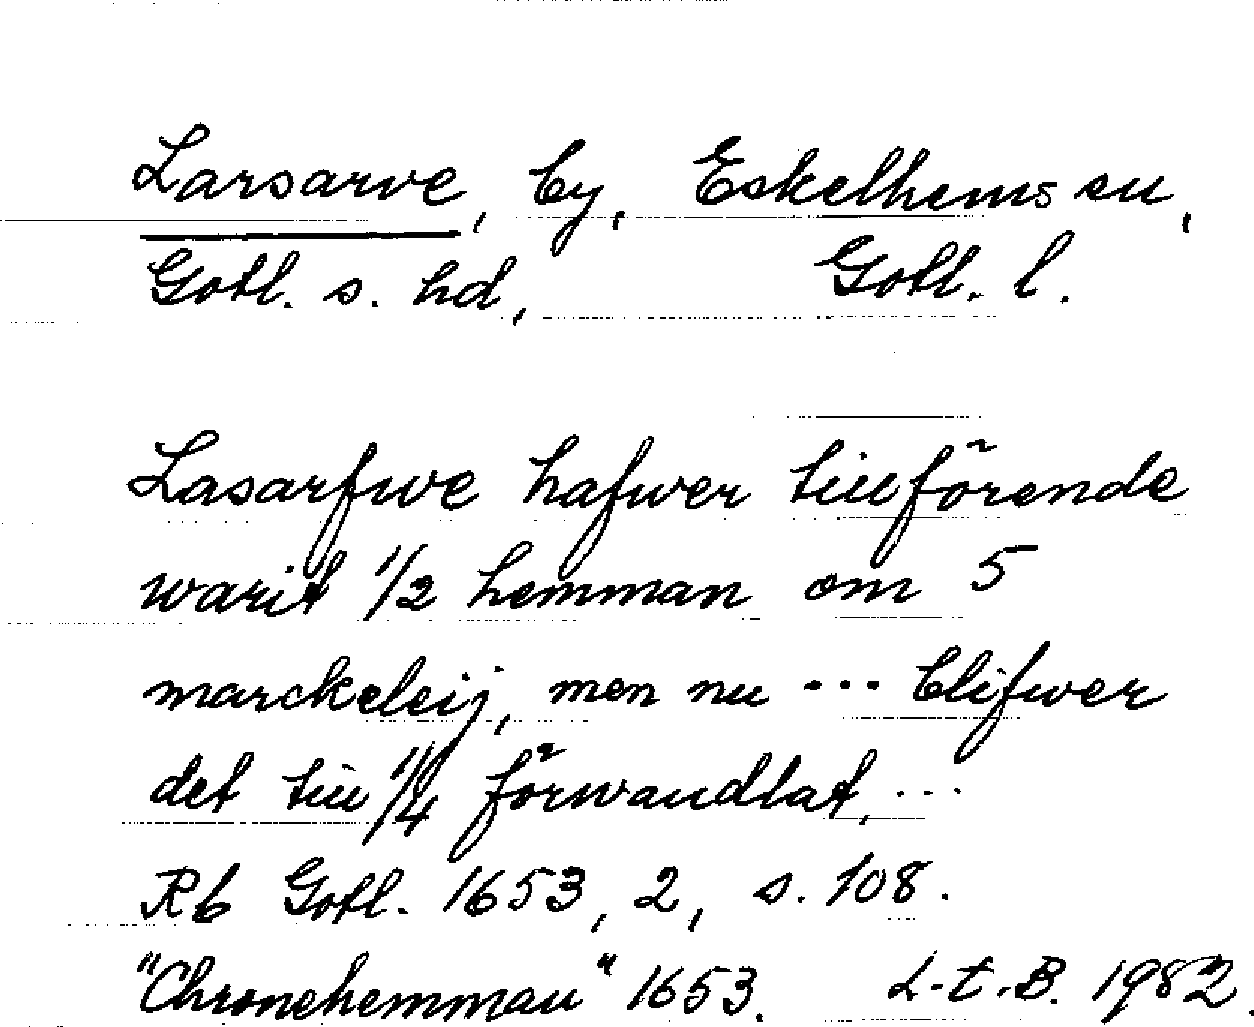 Larsarve, by, Eskelhems sn,
Gotl. s. hd, Gotl. l.
Lasarfwe hafwer tillförende
warit 1/2 hemman om 5
marckeleij, men nu ... blifwer
det till 1/4 förwandlat, ...
Rb Gotl. 1653, 2, s. 108.
"Chronehemman" 1653. L-t.B. 1982.